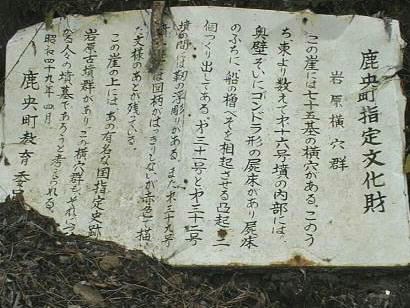 鹿央町指定文化財
岩原横穴群
この崖には七十五基の横穴がある、このう
ち東より数えて才十六号墳の内部には、
奥壁ぞいにゴンドラ形の屍床があり屍床
のふちに、船の櫓べそを相起させる凸起、二
個つくり出してある、才三十一号と才三十二号
墳の間には靭の浮彫りがある。また才二十九号
は図柄がはっきりとないが赤色で描
文様のあとが残っている。
この崖の上には、あの有名な国指定史跡
岩原古墳群があり、この横穴群も、それにつ
な人々の墳墓であろうと考えられる。
昭和四十九年四月
鹿央町教育委